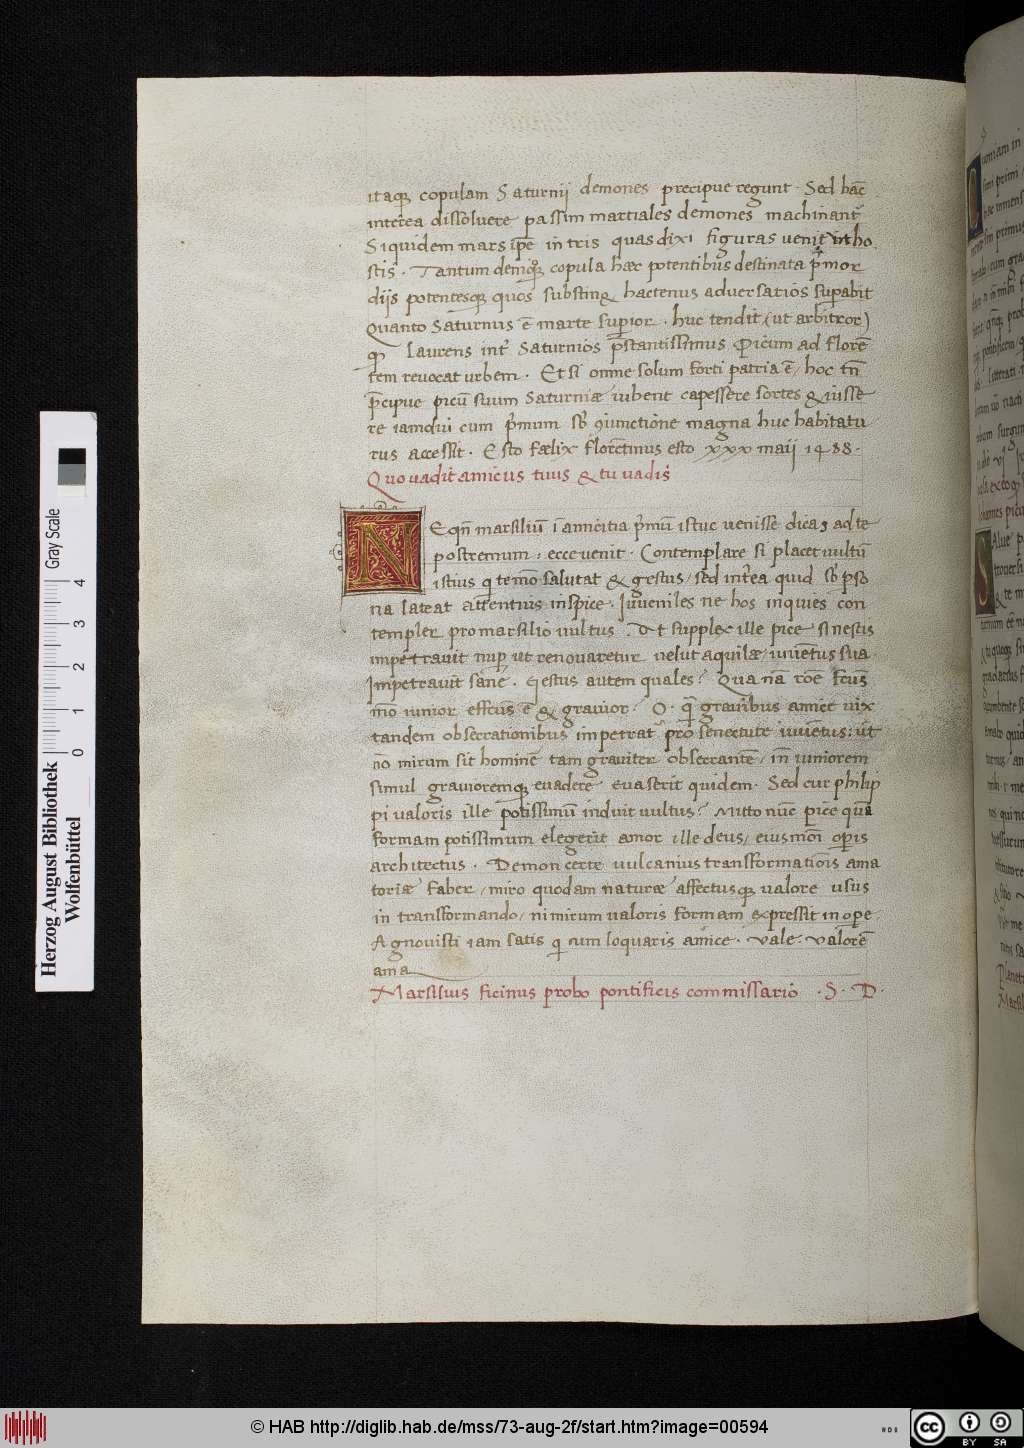 itaqȝ copulam Saturnij demones precipue regunt. Sed hāc
interea dissoluere passim martiales demones machinant᷑
Siquidem mars ip̄e in tris quas dixi figuras uenit in ho
stis. Tantum demoꝝ copula haec potentibus destinata p̄mor
dijs potentesqȝ quos substing hactenus aduersarios supabit
Quanto Saturnus ē marte supior. huc tendit (ut arbitror)
ꝙ laurens int᷑ Saturnios p̄stantissimus Picum ad florē
tem reuocat urbem. Et si omne solum forti patria ē, hoc tn̄
p̄cipue picū suum Saturniae iuberit capessere sortes & iusse
re iamdiu cum p̄mum sb̓ ꝯiunctione magna huc habitatu
rus accessit. Esto fœlix florētinus esto xxx maij 1488.
Quo uadit amicus tuus & tu uadis
NEqn̄ marsiliū ī amicitia p̄mū istuc uenisse dicas ad te
postremum, ecce uenit. Contemplare si placet uultū
istius q̇ te mō salutat & gestus, sed int᷑ea quid sb̓ pso
na lateat attentius inspice. Iuueniles ne hos inquies con
templer pro marsilio uultus. Vt supplex ille pice si nestis
impetrauit nup ut renouaretur uelut aquilæ, iuuētus sua
Impetrauit sane. Gestus autem quales? Qua nā rōe fcūs
mō iunior effcūs ē & grauior? O. q̄ grauibus amice uix
tandem obsecrationibus impetrat᷑ pro senectute iuuētus: ut
nō mirum sit hominē tam grauiter obsecrantē, in iuniorem
simul grauioremqȝ euadere euaserit quidem. Sed cur philip
pi ualoris ille potissimū induit uultus? Nitto nūc pice quā
formam potissimum elegerit amor ille deus, eiusmōi opis
architectus. Demon certe uulcanius transformatiōis ama
toriæ faber, miro quodam naturæ affectusqȝ ualore usus
in transformando, nimirum ualoris formam expressit in ope.
Agnouisti iam satis q̇ cum loquaris amice. Vale. Valorē
ama
Marsilius ficinus probo pontificis commissario .S. D.
Herzog August Bibliothek
Wolfenbüttel
Gray Scale
0 1 2 3 4
© HAB http://diglib.hab.de/mss/73-aug-2f/start.htm?image=00594
cc BY SA